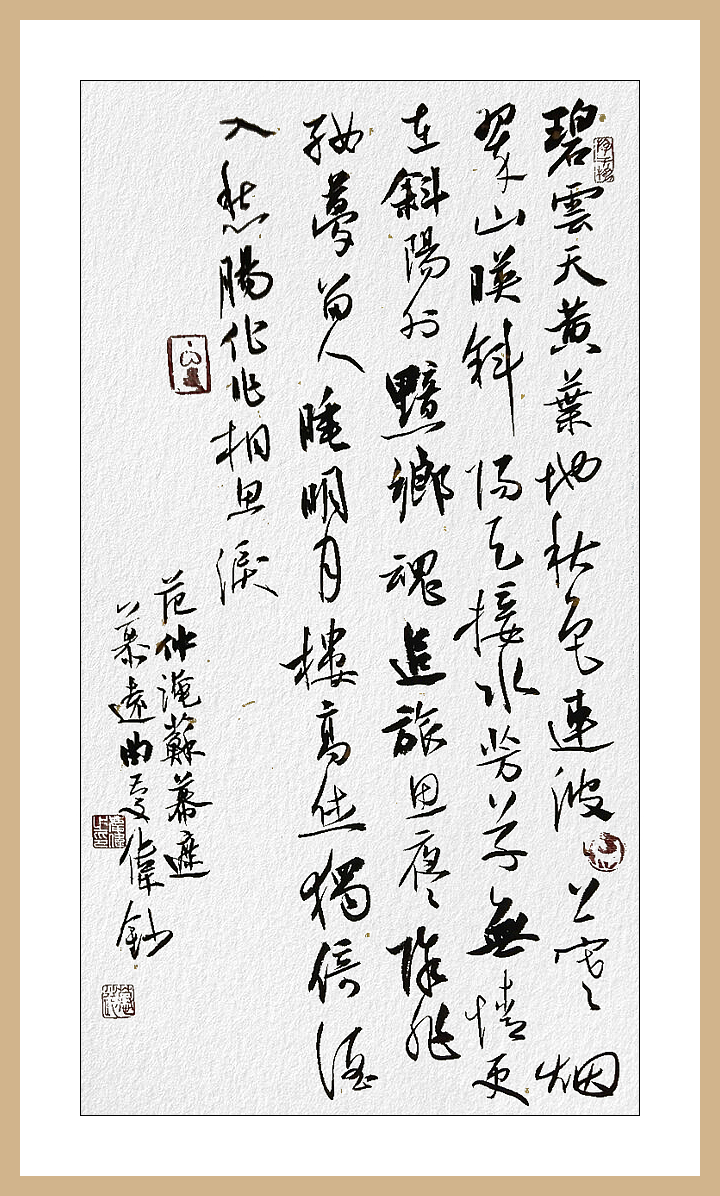 碧雲天黃葉地秋色連波上寒烟
翠山暎斜陽天接水芳草無情更
在斜陽外黯鄉魂追旅思夜々除非
好夢留人睡明月樓高休獨倚酒
入愁腸化作相思淚
范仲淹蘇幕遮
慕遠曲偉鈔